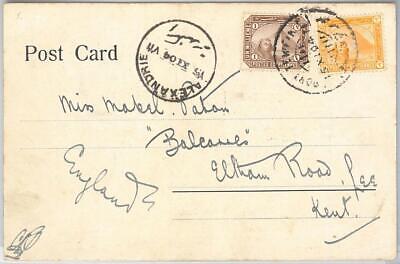 Post Card
ALEXANDRIE
XI 04
Miss Mabel Paton
"Balcarres"
Eltham Road, Lee
Kent.
England